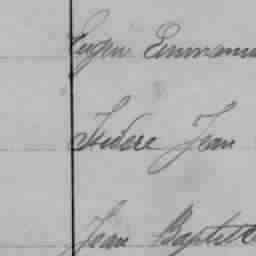 Eugene Emmanu
Isidore Jean
Jean Baptiste